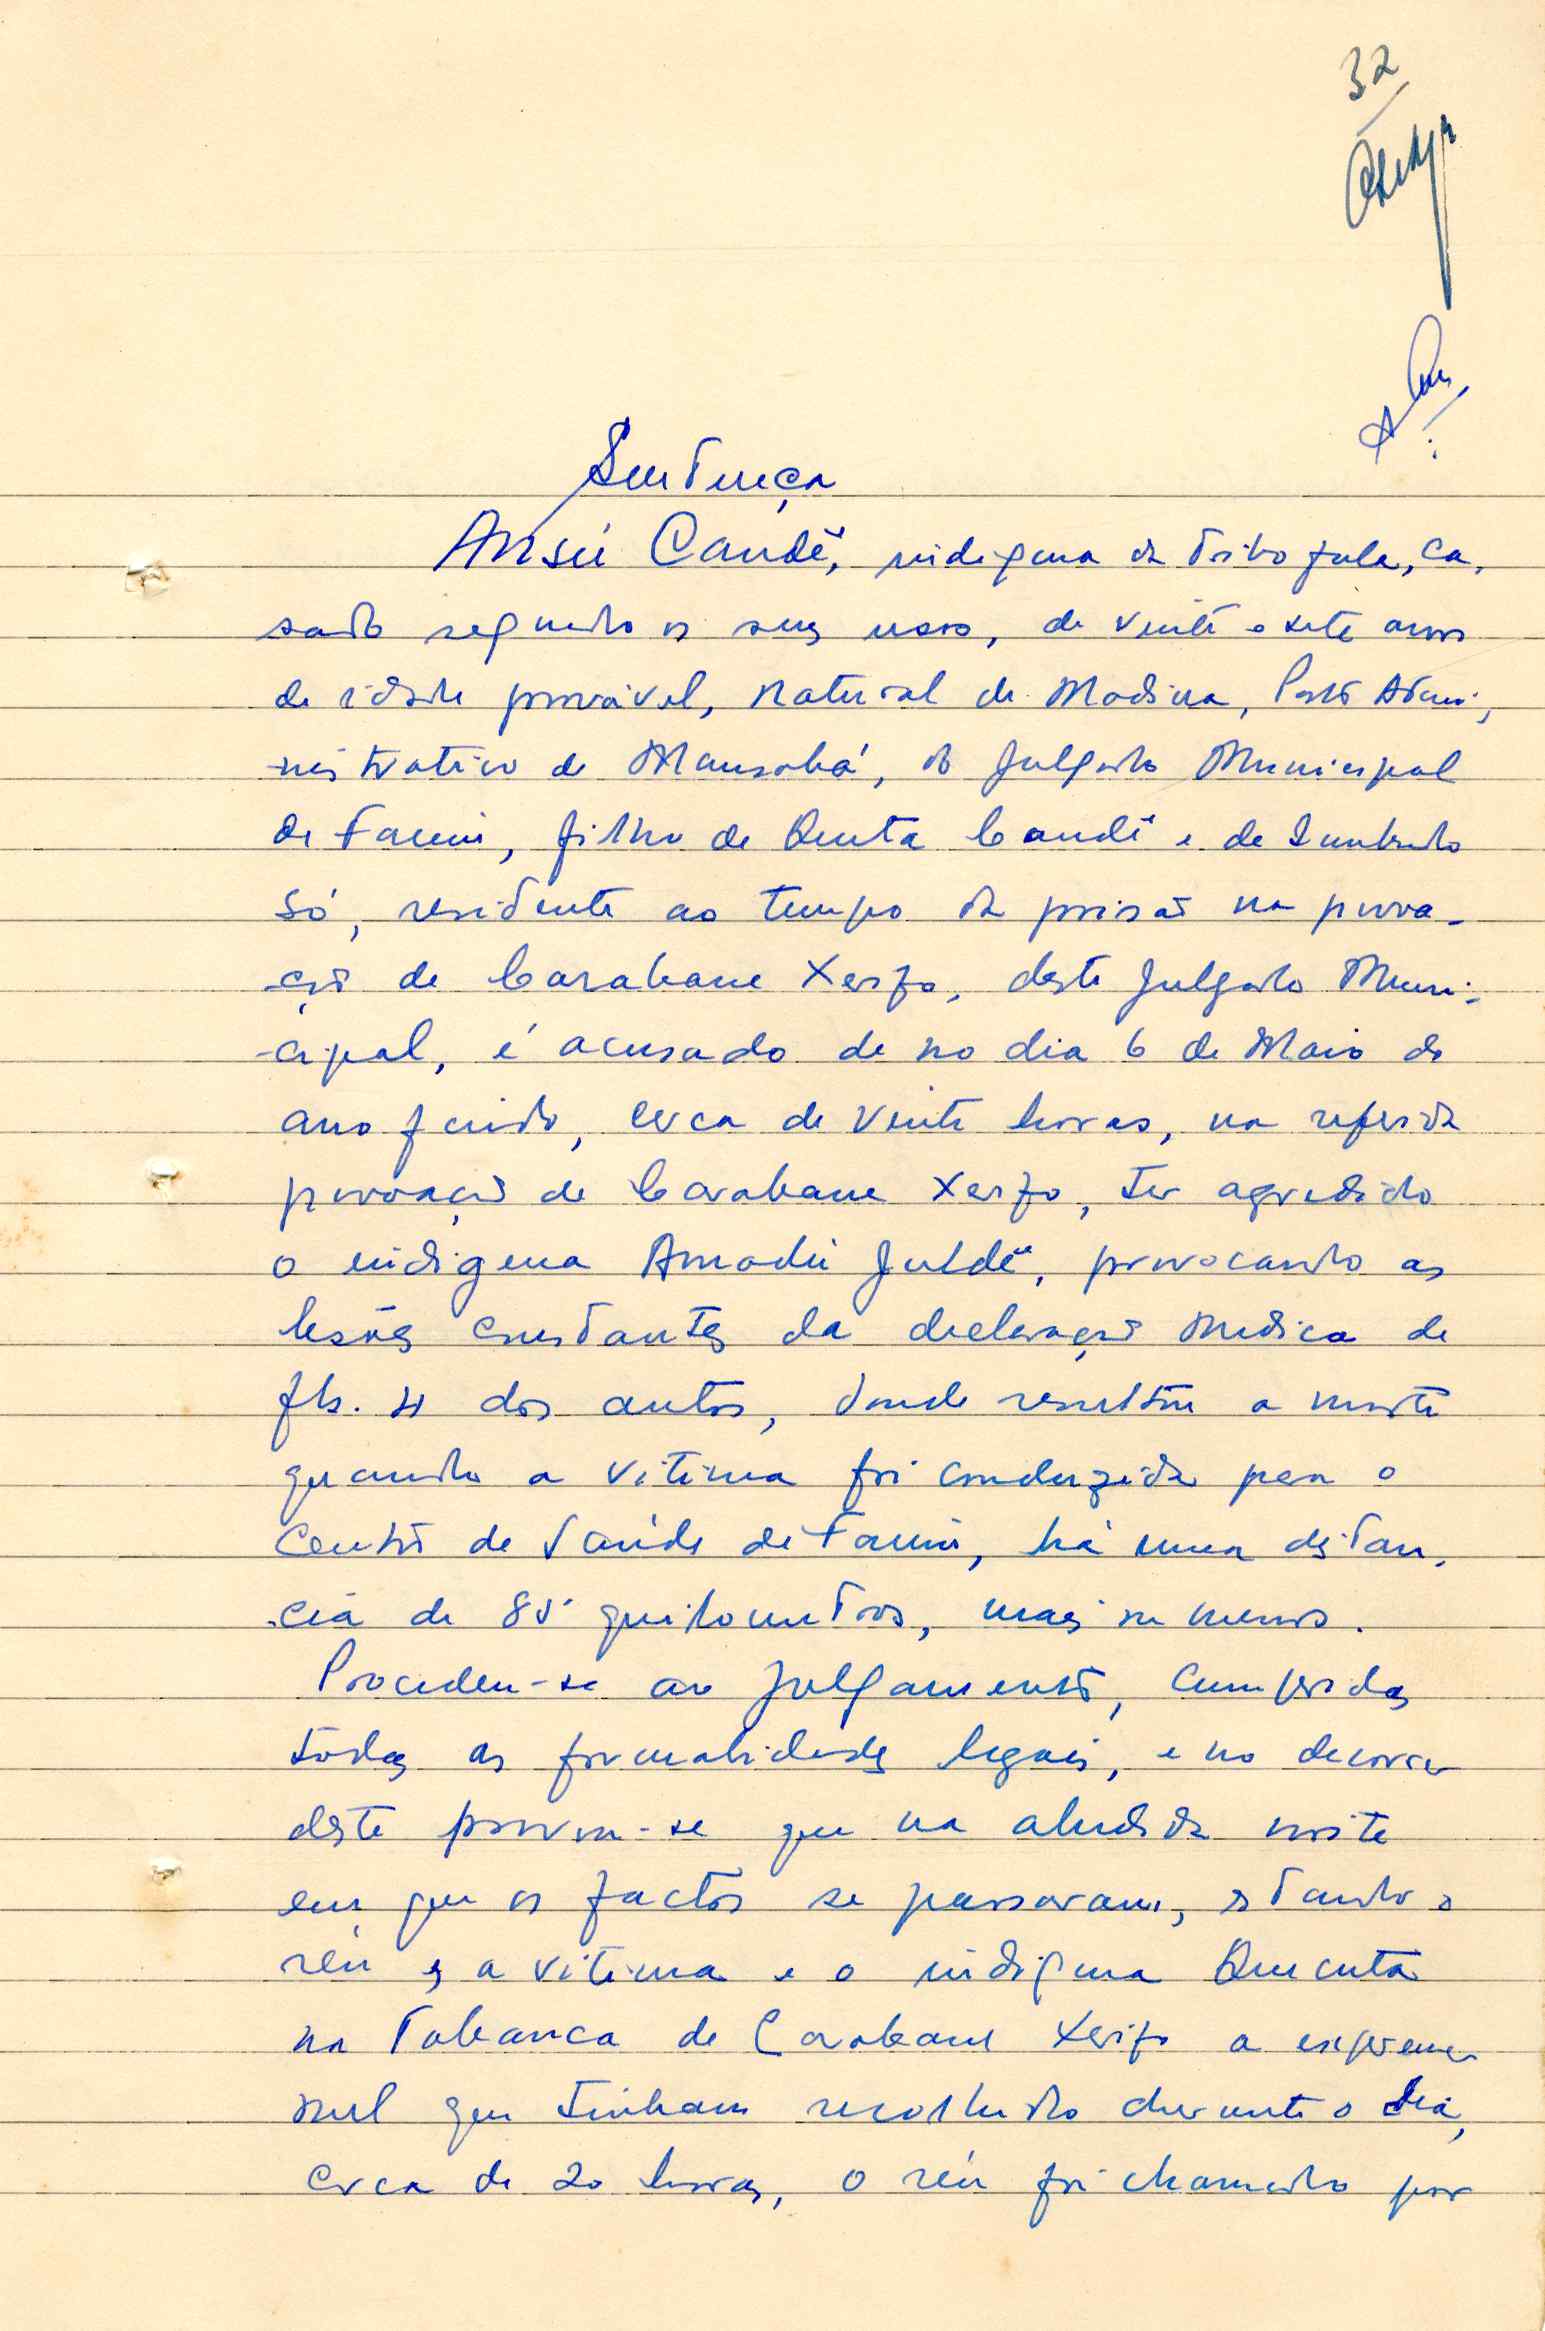 32
Sentença
Ansú Candê, indigena da tribo fula, ca-
sado segundo os seus usos, de vinte e sete anos
de idade provável, natural de Madina, Posto Admi-
nistrativo de Mansabá, do Julgado Municipal
de Farim, filho de Quta Candê e de
Só, residente ao tempo da prisão na povoa-
ção de Carabane Xerifo, deste Julgado Muni-
cipal, é acusado de no dia 6 de Maio do
ano findo, cerca de vinte horas, na referida
povoação de Carabane Xerifo, ter agredido
o indigena Amadú Juldê, provocando as
lesões constantes da declaração médica de
fls. 4 dos autos, donde resultou a morte
quando a vitima foi conduzida para o
Centro de Saúde de Farim, há uma distan-
cia de 85 quilometros, mais ou menos.
Procedeu-se ao julgamento, cumpridas
todas as formalidades legais, e no decorrer
deste provou-se que na aludida noite
em que os factos se passaram, estando o
réu e, a vitima e o indigena
na Tabanca de Carabane Xerifo a espremer
mel que tinham recolhido durante o dia,
cerca de 20 horas, o réu foi chamado por